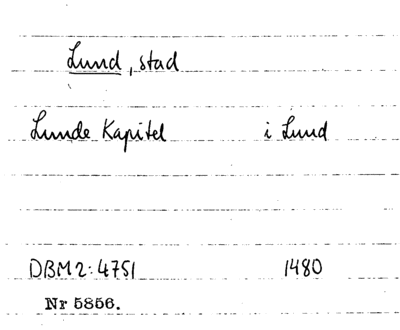 Lund, stad
Lunde Kapitel i Lund
DBM 2:4751 1480
Nr 5856.